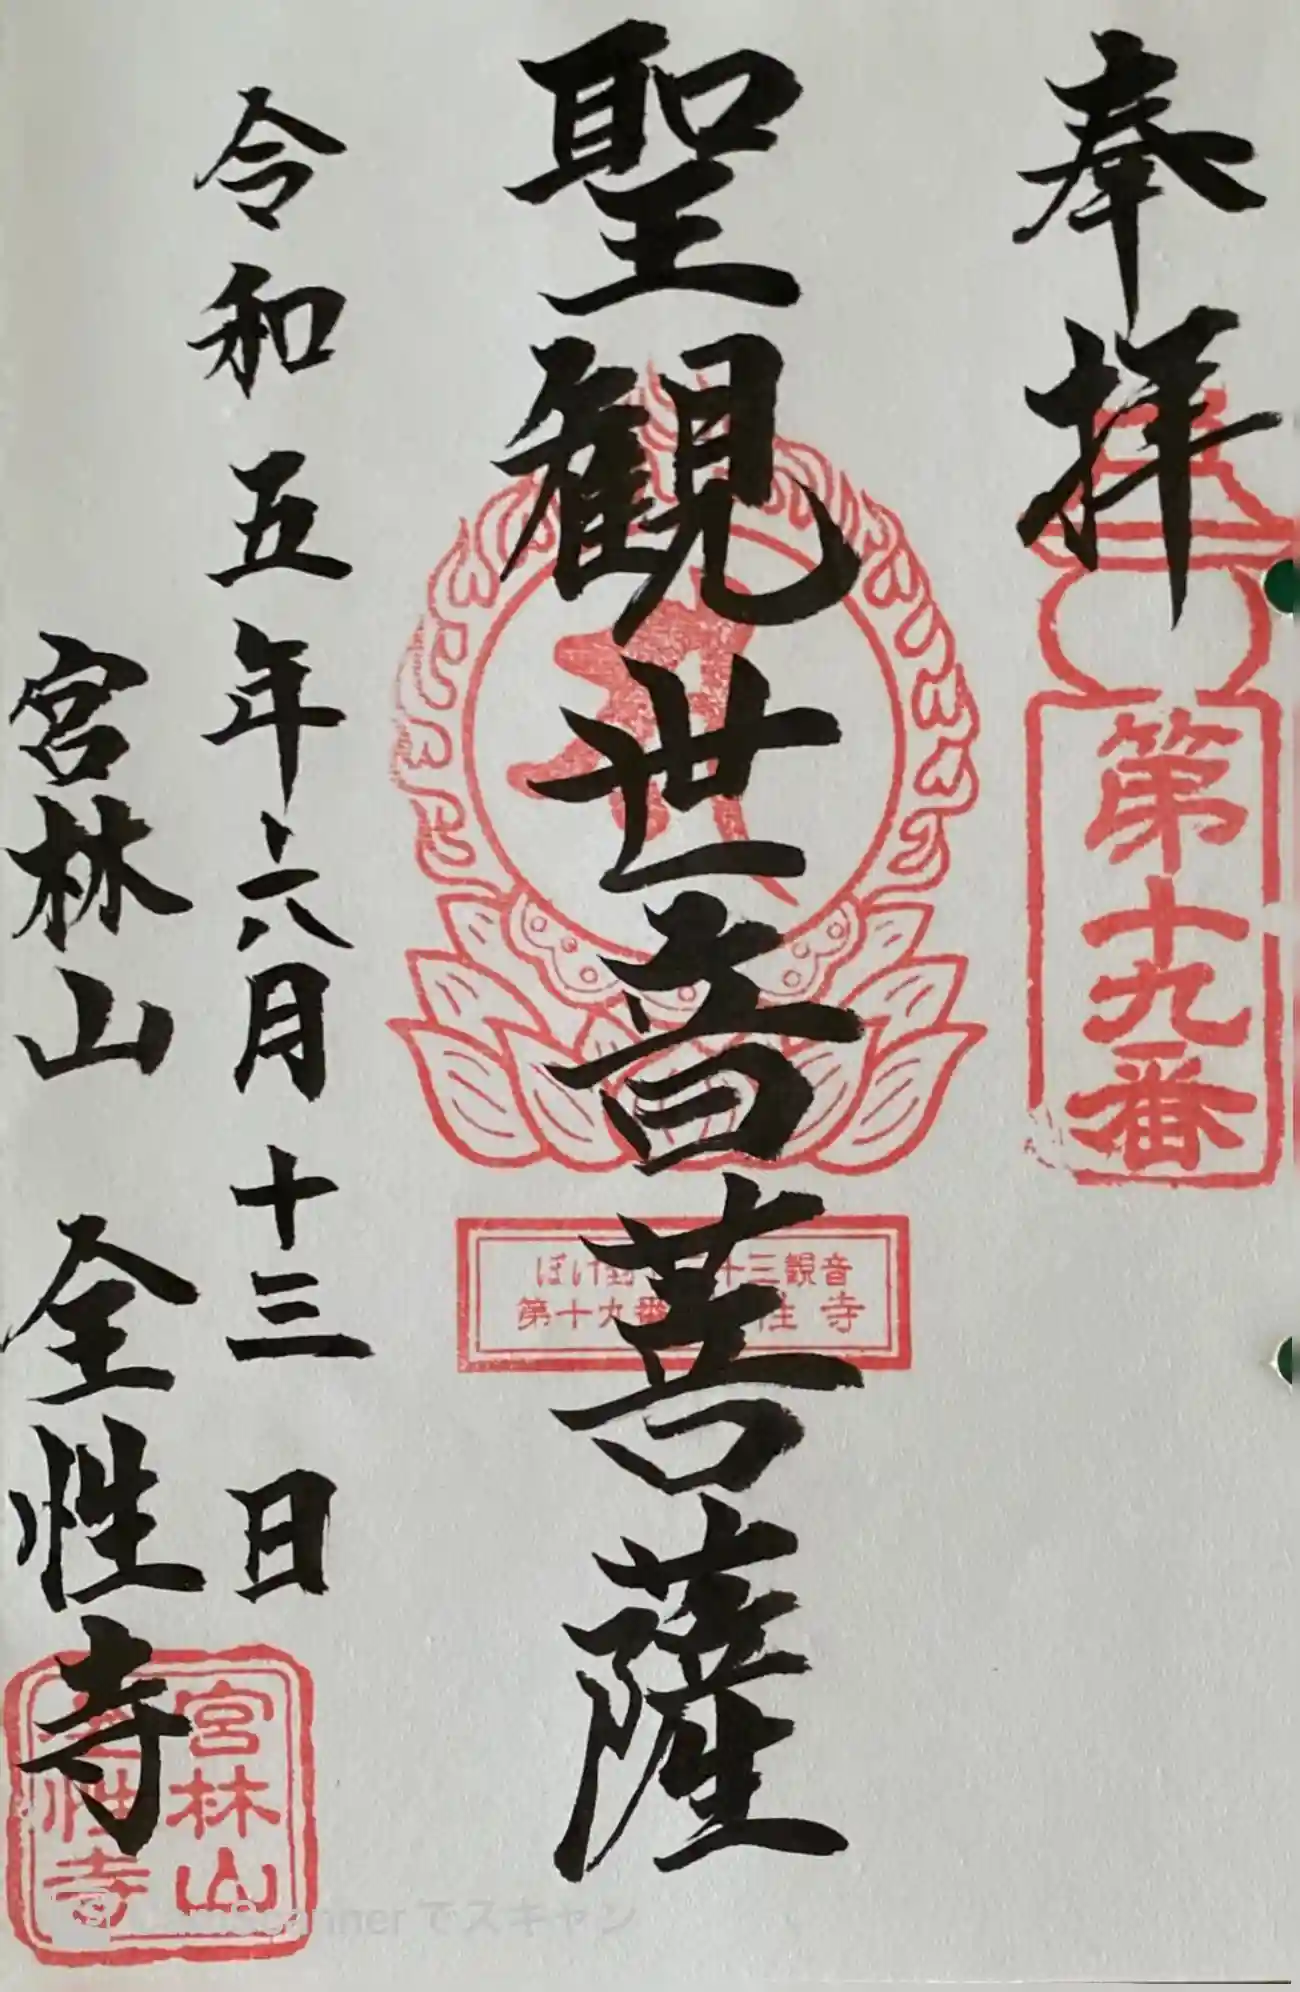 奉拝
第十九番
聖観世音菩薩
ぼけ封 十三観音
第十九番 性寺
令和五年六月十三日
宮林山 全性寺
宮林山
全性寺
CamScanner でスキャン